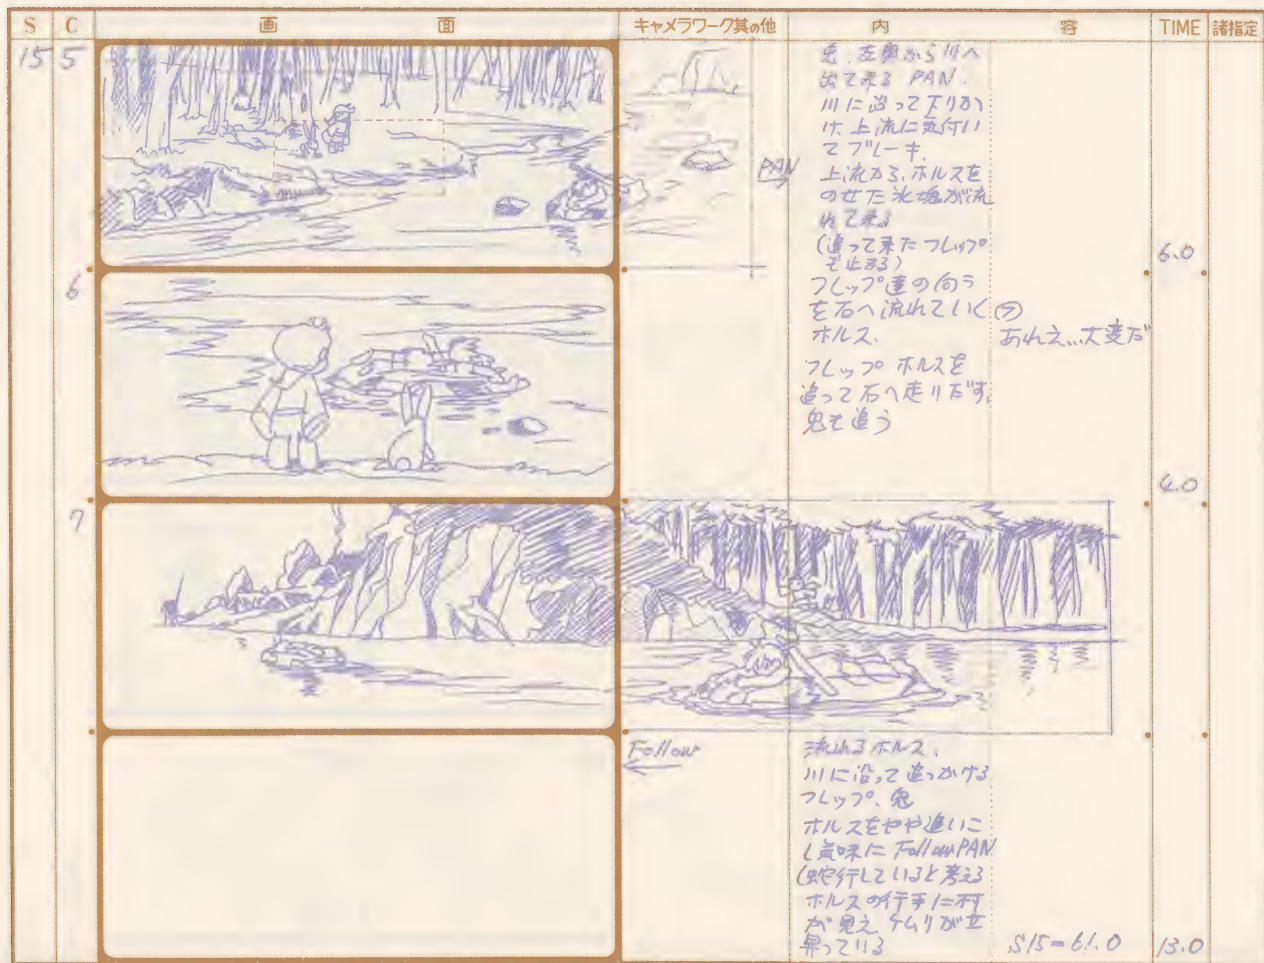 S C 画面 キャメラワーク其の他 内容 TIME 諸指定
15 5
兎、左奥から川へ
出て来る PAN.
川に沿って下りか
け上流に気付い
てブレーキ、
上流から、ホルスを
のせた氷塊が流
れて来る
(追って来たフレップ
も止まる)
PAN
6.0
6
フレップ達の向う
を右へ流れていく
ホルス、
フレップ ホルスを
追って右へ走りだす。
兎も追う
㋫
あれえ…大変だ
4.0
7
Follow
流れるホルス、
川に沿って追っかける
フレップ、兎
ホルスをやや追いこ
し気味に FollowPAN
(蛇行していると考える
ホルスの行手に村
が見え、ケムリが立
昇っている
S15=61.0
13.0